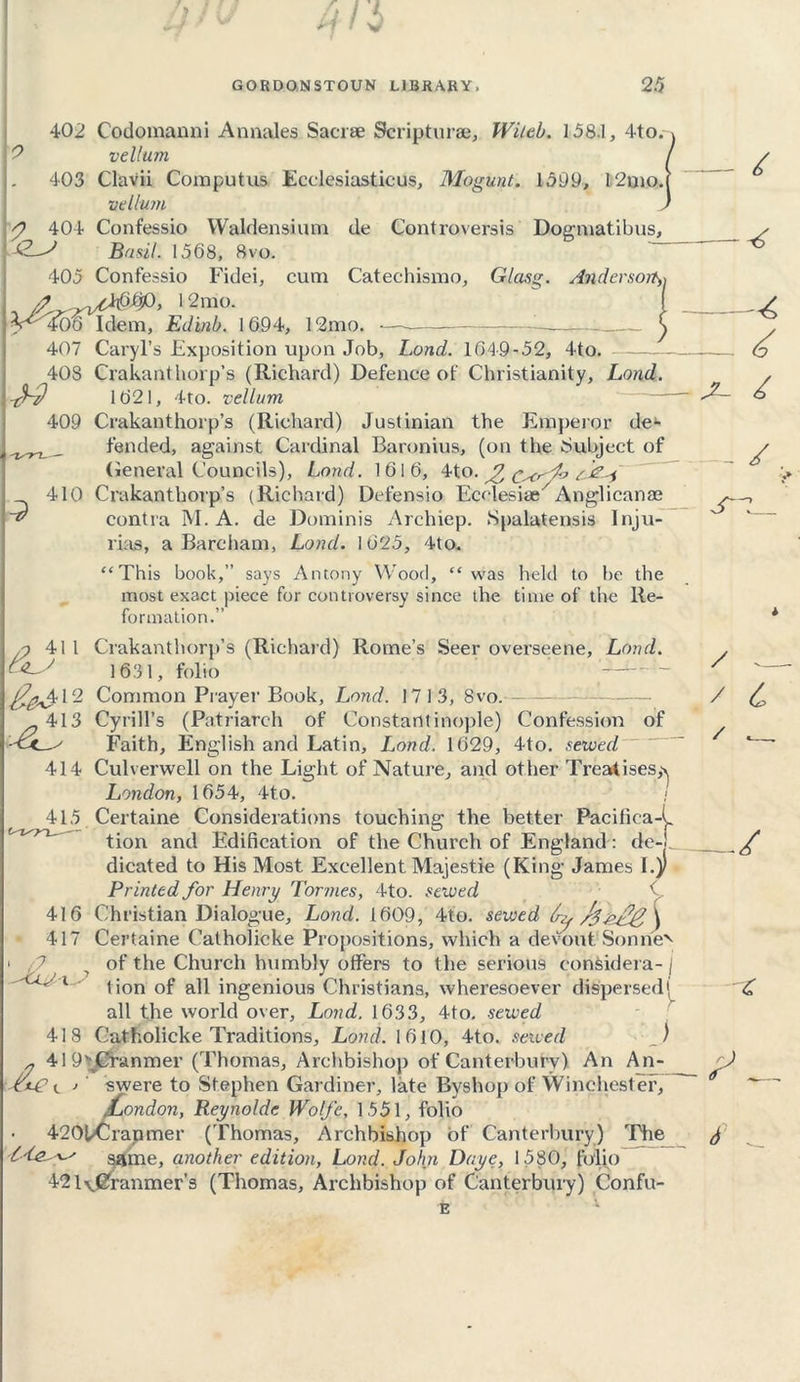 GORDONSTOUN LIBRARY. 25
402 Codomanni Annales Sacræ Scripturæ, Witeb. 1581, 4to.
vellum
403 Clavii Computus Ecclesiasticus, Mogunt. 1599, 12mo.
vellum
404 Confessio Waldensium de Controversis Dogmatibus,
Basil. 1568, 8vo.
405 Confessio Fidei, cum Catechismo, Glasg. Anderson,
12mo.
406 Idem, Edinb. 1694, 12mo.
407 Caryl's Exposition upon Job, Lond. 1649-52, 4to.
408 Crakanthorp's (Richard) Defence of Christianity, Lond.
1621, 4to. vellum
409 Crakanthorp's (Richard) Justinian the Emperor de-
fended, against Cardinal Baronius, (on the Subject of
General Councils), Lond. 1616, 4to.
410 Crakanthorp's (Richard) Defensio Ecclesiæ Anglicanæ
contra M. A. de Dominis Archiep. Spalatensis Inju-
rias, a Barcham, Lond. 1625, 4to.
“This book,” says Antony Wood, “was held to be the
most exact piece for controversy since the time of the Re-
formation.”
411 Crakanthorp's (Richard) Rome's Seer overseene, Lond.
1631, folio
412 Common Prayer Book, Lond. 1713, 8vo.
413 Cyrill's (Patriarch of Constantinople) Confession of
Faith, English and Latin, Lond. 1629, 4to. sewed
414 Culverwell on the Light of Nature, and other Treatises,
London, 1654, 4to.
415 Certaine Considerations touching the better Pacifica-
tion and Edification of the Church of England: de-
dicated to His Most Excellent Majestie (King James I.)
Printed for Henry Tormes, 4to. sewed
416 Christian Dialogue, Lond. 1609, 4to. sewed by
417 Certaine Catholicke Propositions, which a devout Sonne
of the Church humbly offers to the serious considera-
tion of all ingenious Christians, wheresoever dispersed
all the world over, Lond. 1633, 4to. sewed
418 Catholicke Traditions, Lond. 1610, 4to. sewed
419 Cranmer (Thomas, Archbishop of Canterbury) An An-
swere to Stephen Gardiner, late Byshop of Winchester,
London, Reynolde Wolfe, 1551, folio
420 Cranmer (Thomas, Archbishop of Canterbury) The
same, another edition, Lond. John Daye, 1580, folio
421 Cranmer's (Thomas, Archbishop of Canterbury) Confu-
E